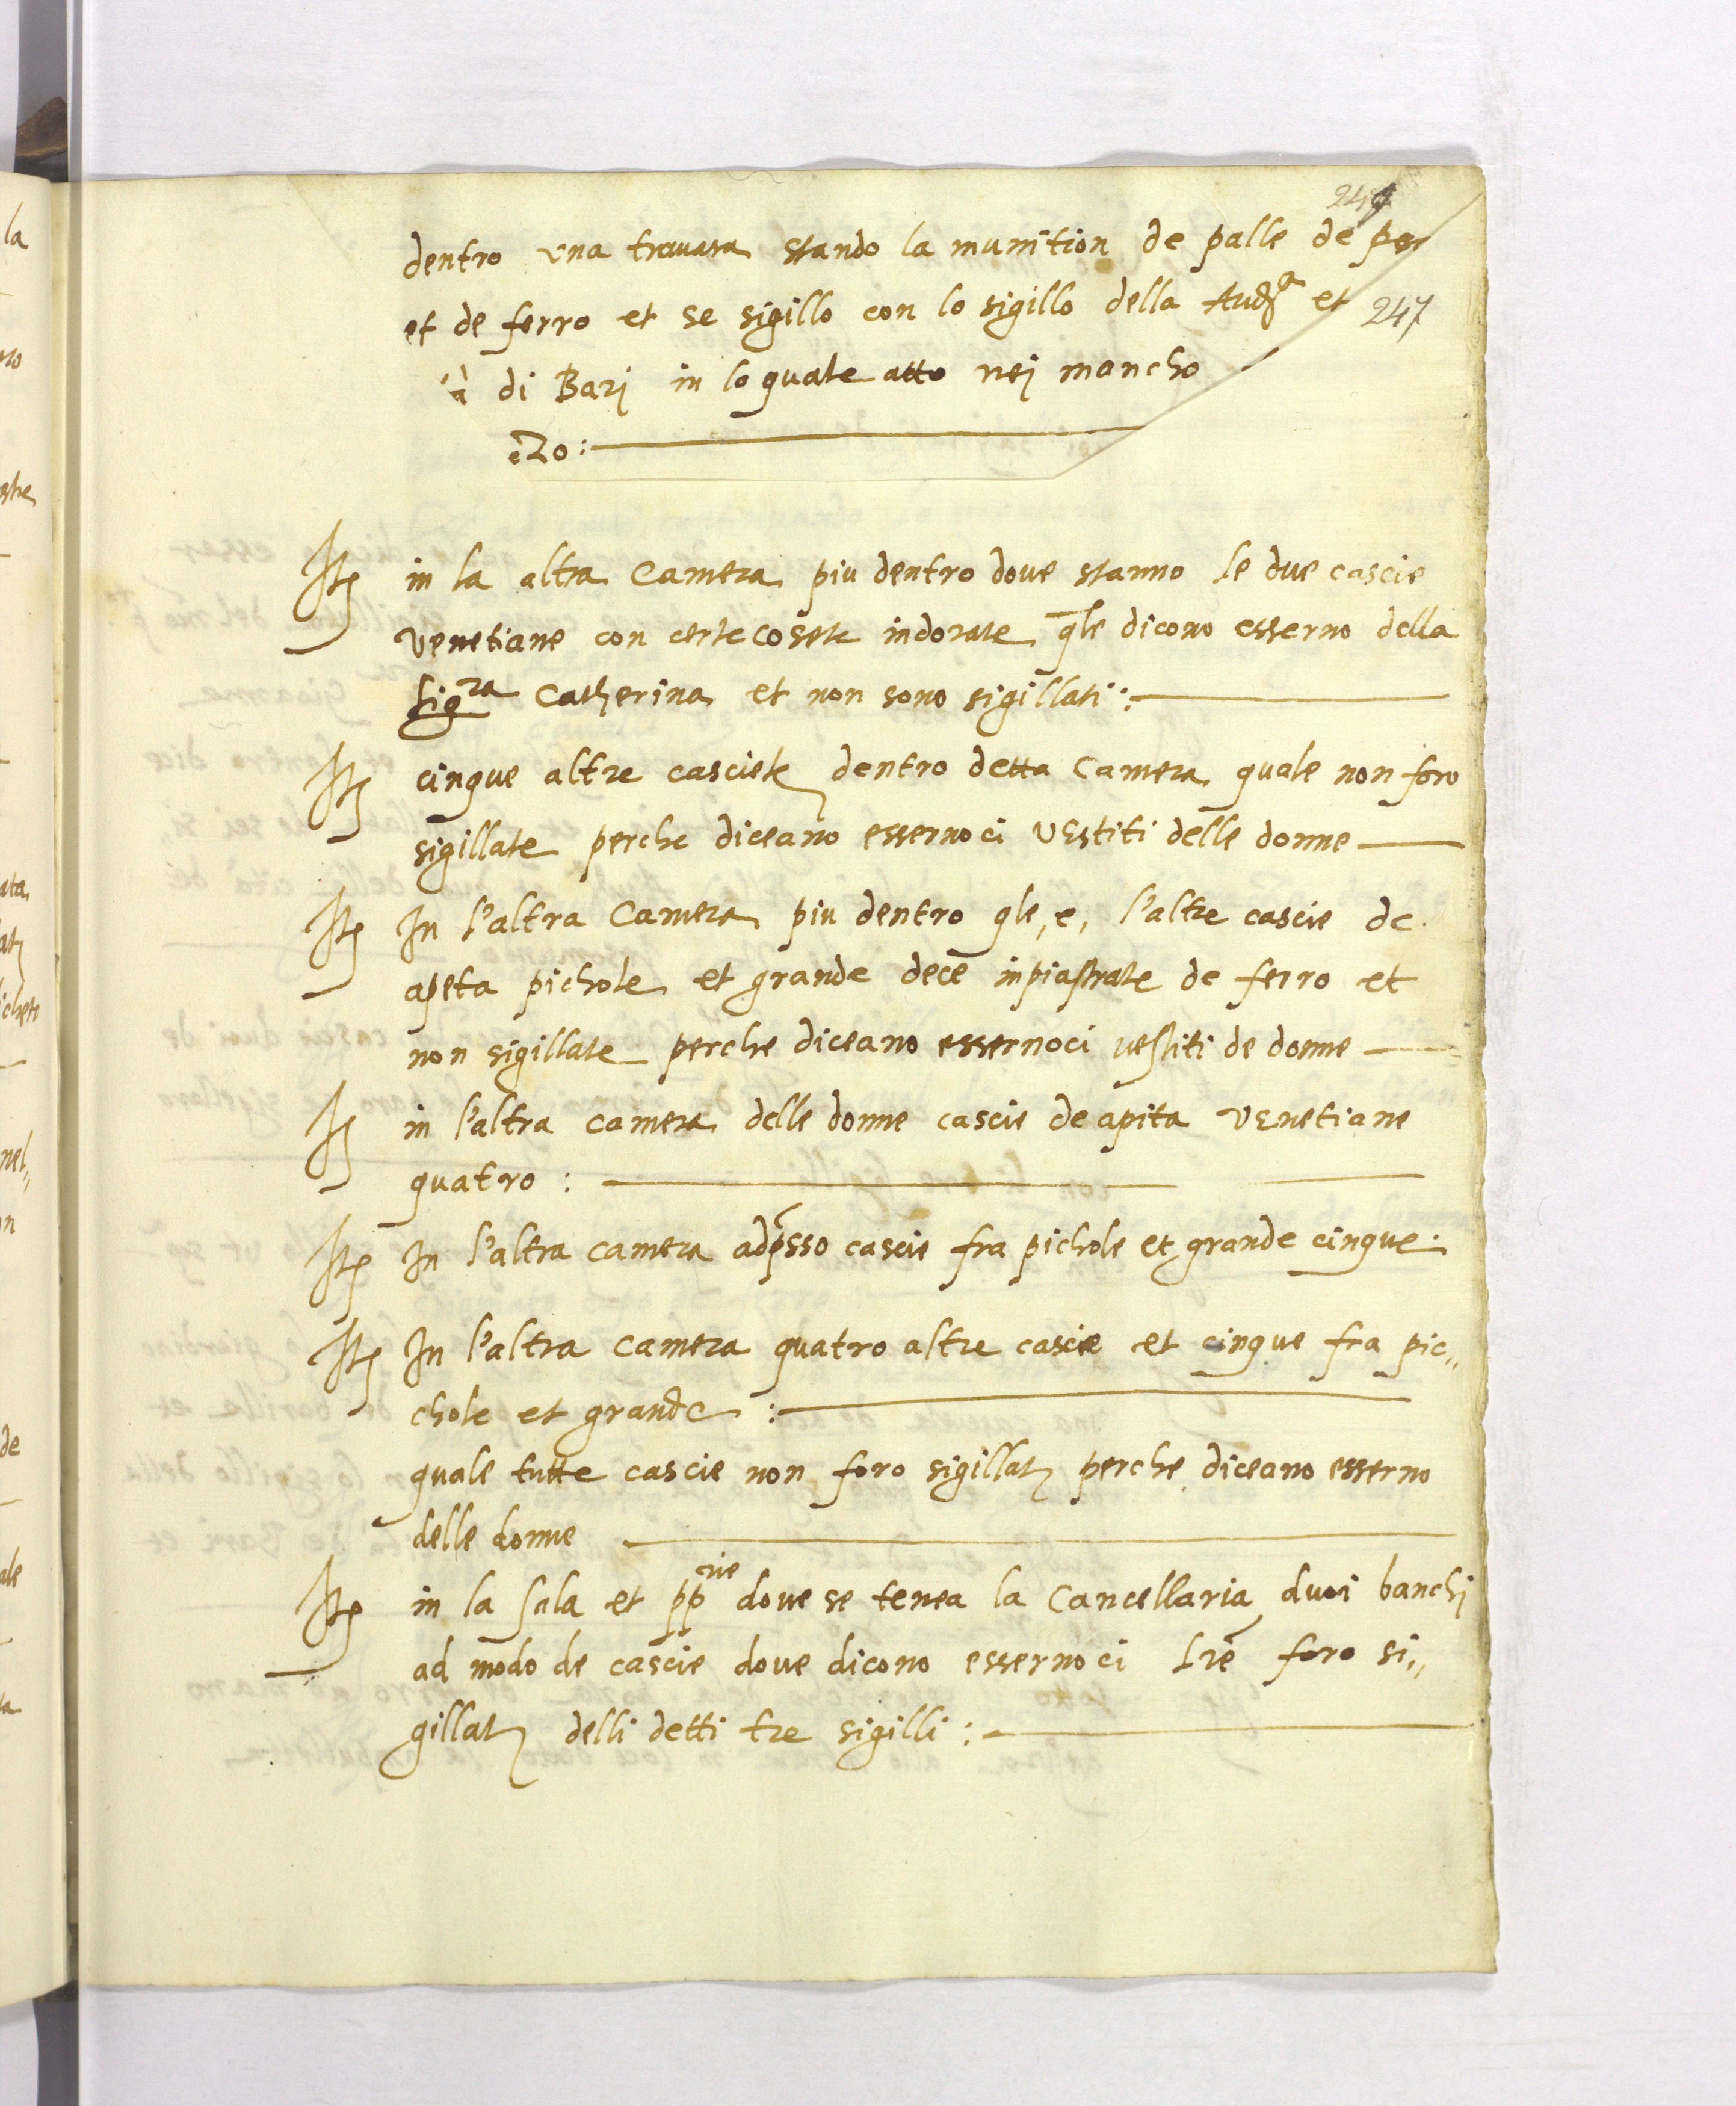 dentro una travata stando la munition de palle de
et de ferro et se sigillo con lo sigillo della Aud.a et 247
di Bari in lo quale atto nej mancho
Itē in la altra camera piu dentro dove stanno le due cascie
venetiane con certe cosete indorate, q̄le dicono esserno della
Sig.ra Catherina et non sono sigillati:
Itē cinque altre casciete dentro detta camera quale non foro
sigillate perche diceano essernoci vestiti delle donne
Itē In l'altra camera piu dentro qle, e, l'altre cascie de
apeta pichole et grande decē inpiastrate de ferro et
non sigillate perche diceano essernoci vestiti de donne
Itē in l'altra camera delle donne cascie de apita venetiane
quatro:
Itē In l'altra camera adp̄sso cascie fra pichole et grande cinque.
Itē In l'altra camera quatro altre cascie et cinque fra pic,,
chole et grande:
quale tutte cascie non foro sigillate perche diceano esserno
delle donne
Itē in la sala et pp.rie dove se tenea la Cancellaria duoi banchj
ad modo de cascie dove dicono essernoci lrē foro si,,
gillate delli detti tre sigilli: